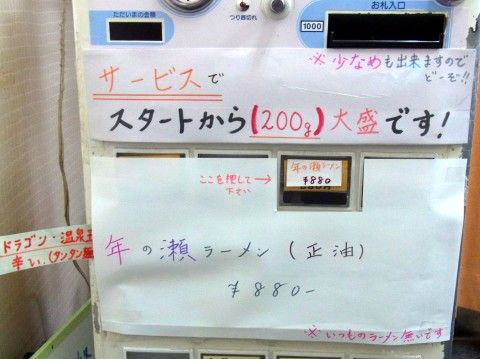 ただいまの金額
つり銭切れ
お札入口
1000
※少なめも出来ますので
どーぞ!!
サービスで
スタートから(200g)大盛です!
ここを押して→
下さい
年の瀬ラーメン
¥880
ドラゴン・温泉玉
辛い。(タンタン麺
年の瀬ラーメン(正油)
¥880-
※いつものラーメン無いです